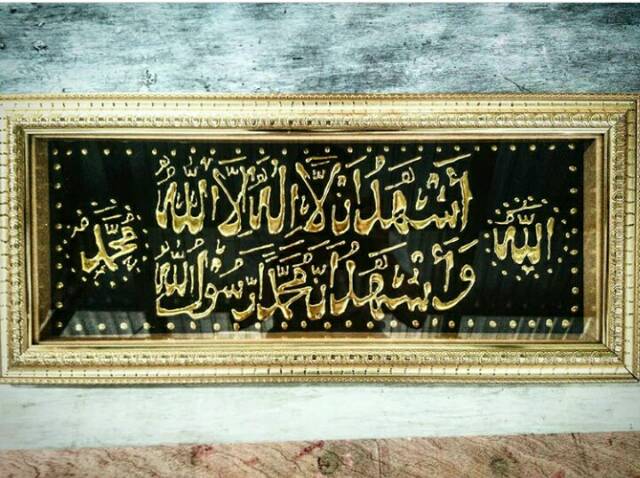 الله
أَشْهَدُ انْ لَّا اِلٰهَ اِلَّا اللّٰهُ
وَأَشْهَدُ انَّ مُحَمَّدًا رَّسُوْلُ اللّٰهِ
مُحَمَّد